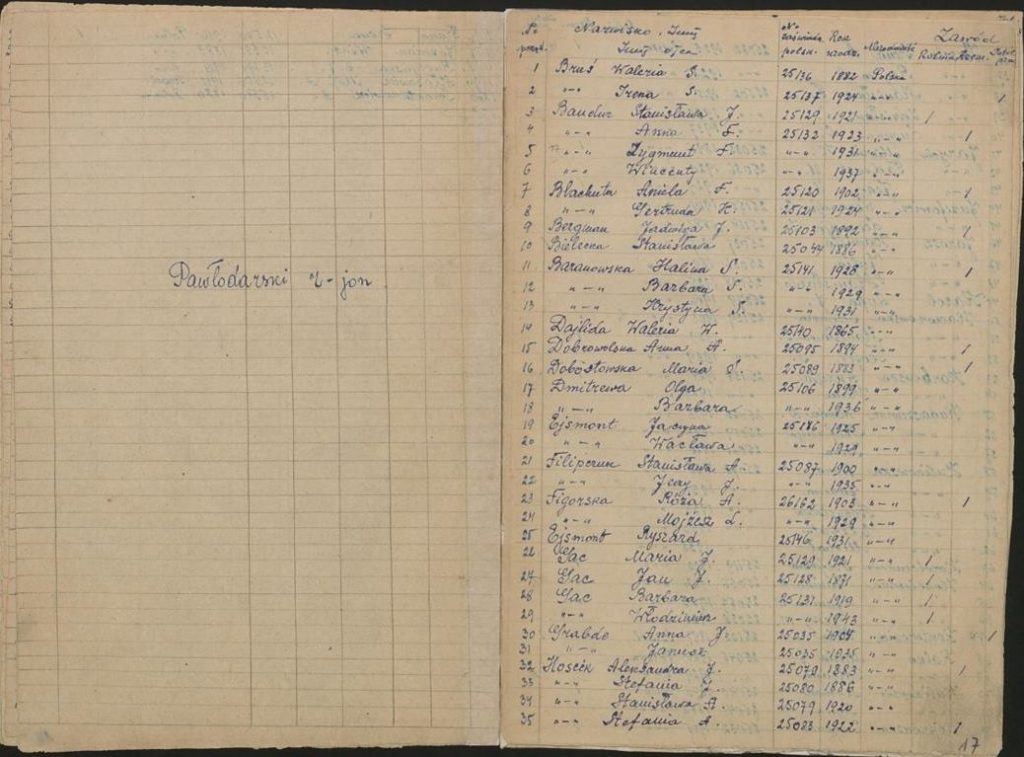 Pawłodarski r-jon
№ porządk. Nazwisko, Imię Imię ojca № zaświadcz. polsk. Rok urodz. Narodowość Zawód
1 Bruś Waleria S. 25136 1882 Polska
2 "–" Irena S. 25137 1924 "–" 1
3 Bandur Stanisława J. 25129 1921 "–" 1
4 "–" Anna F. 25132 1923 "–" 1
5 "–" Zygmunt F. "–" 1931 "–"
6 "–" Wincenty "–" 1937 "–"
7 Blachuta Aniela F. 25120 1902 "–" 1
8 "–" Gertruda H. 25121 1924 "–"
9 Bergman Jadwiga J. 25103 1892 "–" 1
10 Bielecka Stanisława 25044 1886 "–"
11 Baranowska Halina S. 25141 1928 "–" 1
12 "–" Barbara S. "–" 1929 "–"
13 "–" Krystyna S. "–" 1931 "–"
14 Dajlida Waleria W. 25140 1865 "–"
15 Dobrowolska Anna A. 25095 1894 "–" 1
16 Dobosłowska Maria S. 25089 1883 "–" 1
17 Dmitrewa Olga 25106 1899 "–"
18 "–" Barbara "–" 1936 "–"
19 Ejsmont Jacyna 25146 1925 "–"
20 "–" Wacława "–" 1929 "–"
21 Filipczuk Stanisława A. 25087 1900 "–"
22 "–" Jerzy J. "–" 1935 "–"
23 Figorska Róża A. 26162 1903 "–" 1
24 "–" Mojżesz L. "–" 1929 "–"
25 Ejsmont Ryszard 25146 1931 "–"
26 Gac Maria J. 25129 1921 "–" 1
27 Gac Jan J. 25128 1871 "–" 1
28 Gac Barbara 25131 1919 "–" 1
29 "–" Włodzimierz "–" 1943 "–" 1
30 Grabde Anna J. 25035 1904 "–" 1
31 "–" Janusz 25035 1935 "–"
32 Hoscek Aleksandra J. 25079 1883 "–" 1
33 "–" Stefania J. 25080 1886 "–"
34 "–" Stanisława A. 25079 1920 "–"
35 "–" Stefania A. 25083 1922 "–" 1
17